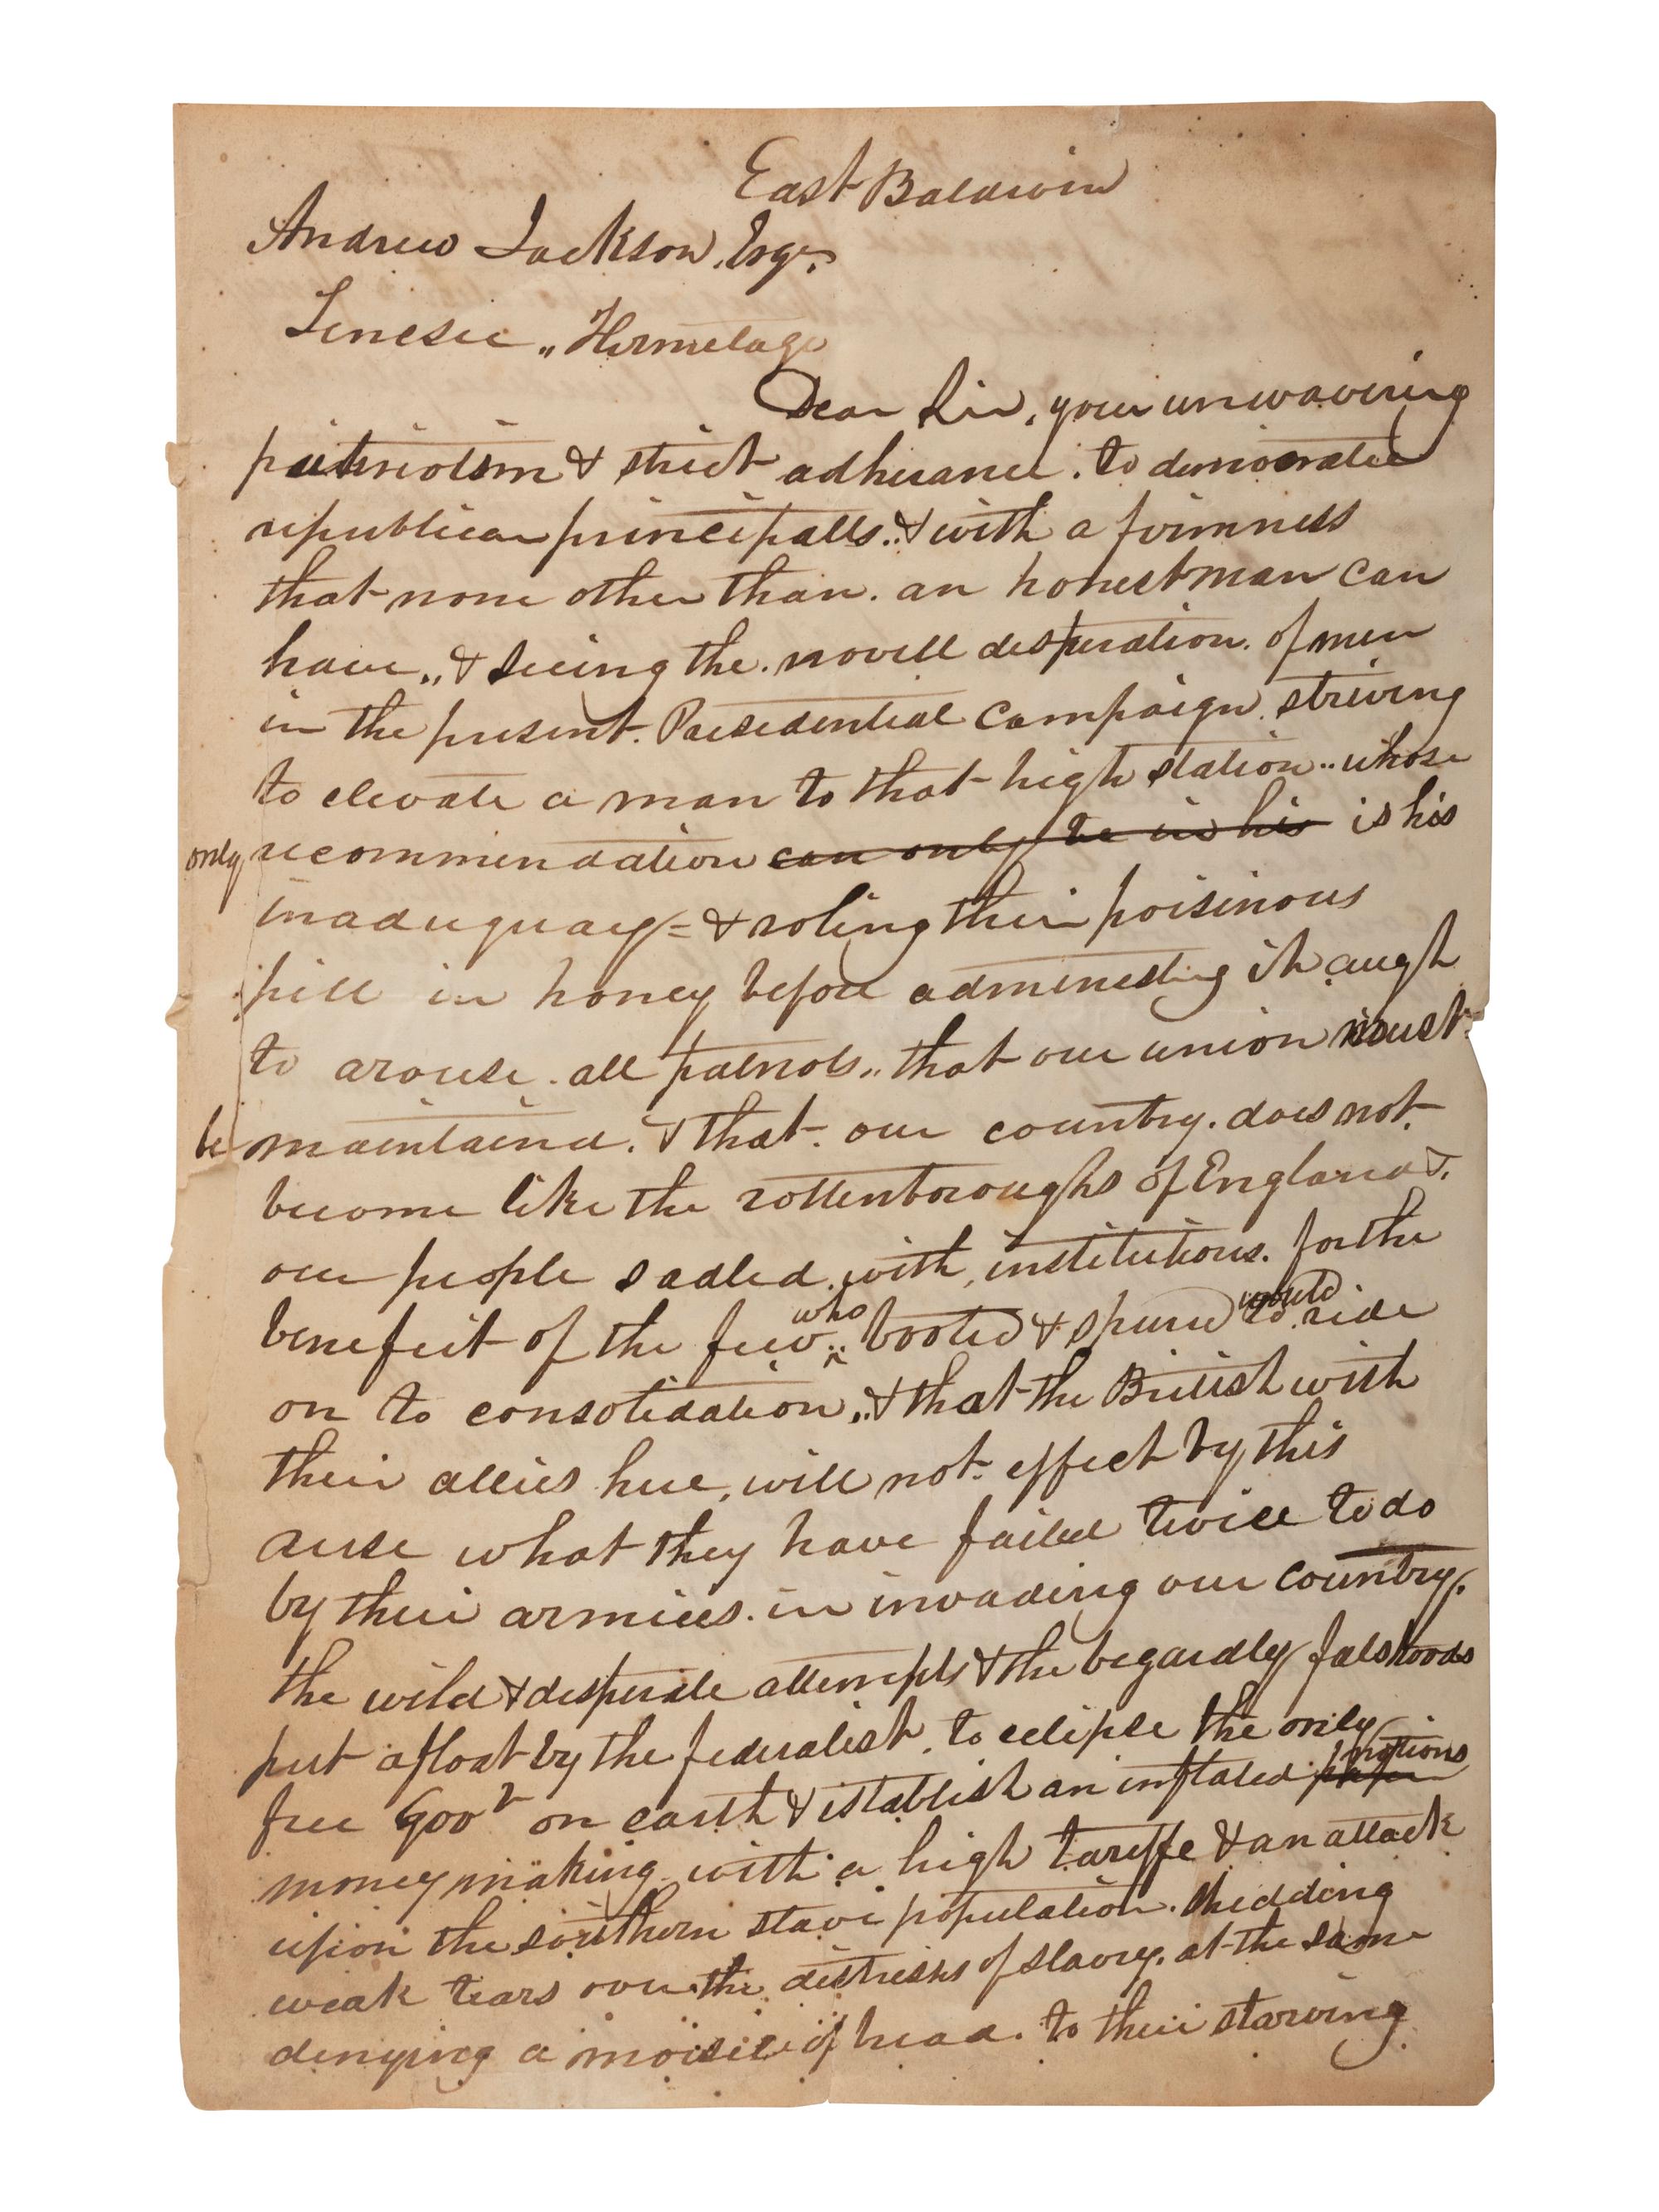 East Baldwin
Andrew Jackson, Esqr.
Tenesee „ Hermetage
Dear Sir, your unwavering
patriotism & strict adherance. to democratic
republican principalls. & with a firmness
that none other than. an honest man can
have „ & seeing the. novell desperation. of men
in the present. Presedential Campaign. striving
to elevate a man to that high station .. whose
only recommendation can only be in his is his
inadequacy = & roling their poisinous
pill in honey before admenestring it, augh
to arouse. all patriots „ that our union must
be maintaind. & that. our country. does not.
become like the rottenboroughs of England &.
our people sadled. with, institutions. for the
benefeit of the few .. who booted & spured to would ride
on to consolidation „ & that the British with
their allies here, will not. effect by this
ruse what they have failed twice to do
by their armies. in invading our country.
the wild & desperate attempts & the begardly falshoods
put afloat by the federalist. to eclipse the only
free Govt on earth & establish an inflated paper notions
money making. with a high tariffe & an attack
upon the southern slave population. shedding
weak tears over the distresses of slavry. at the same
denying a morsel of bread. to their starving